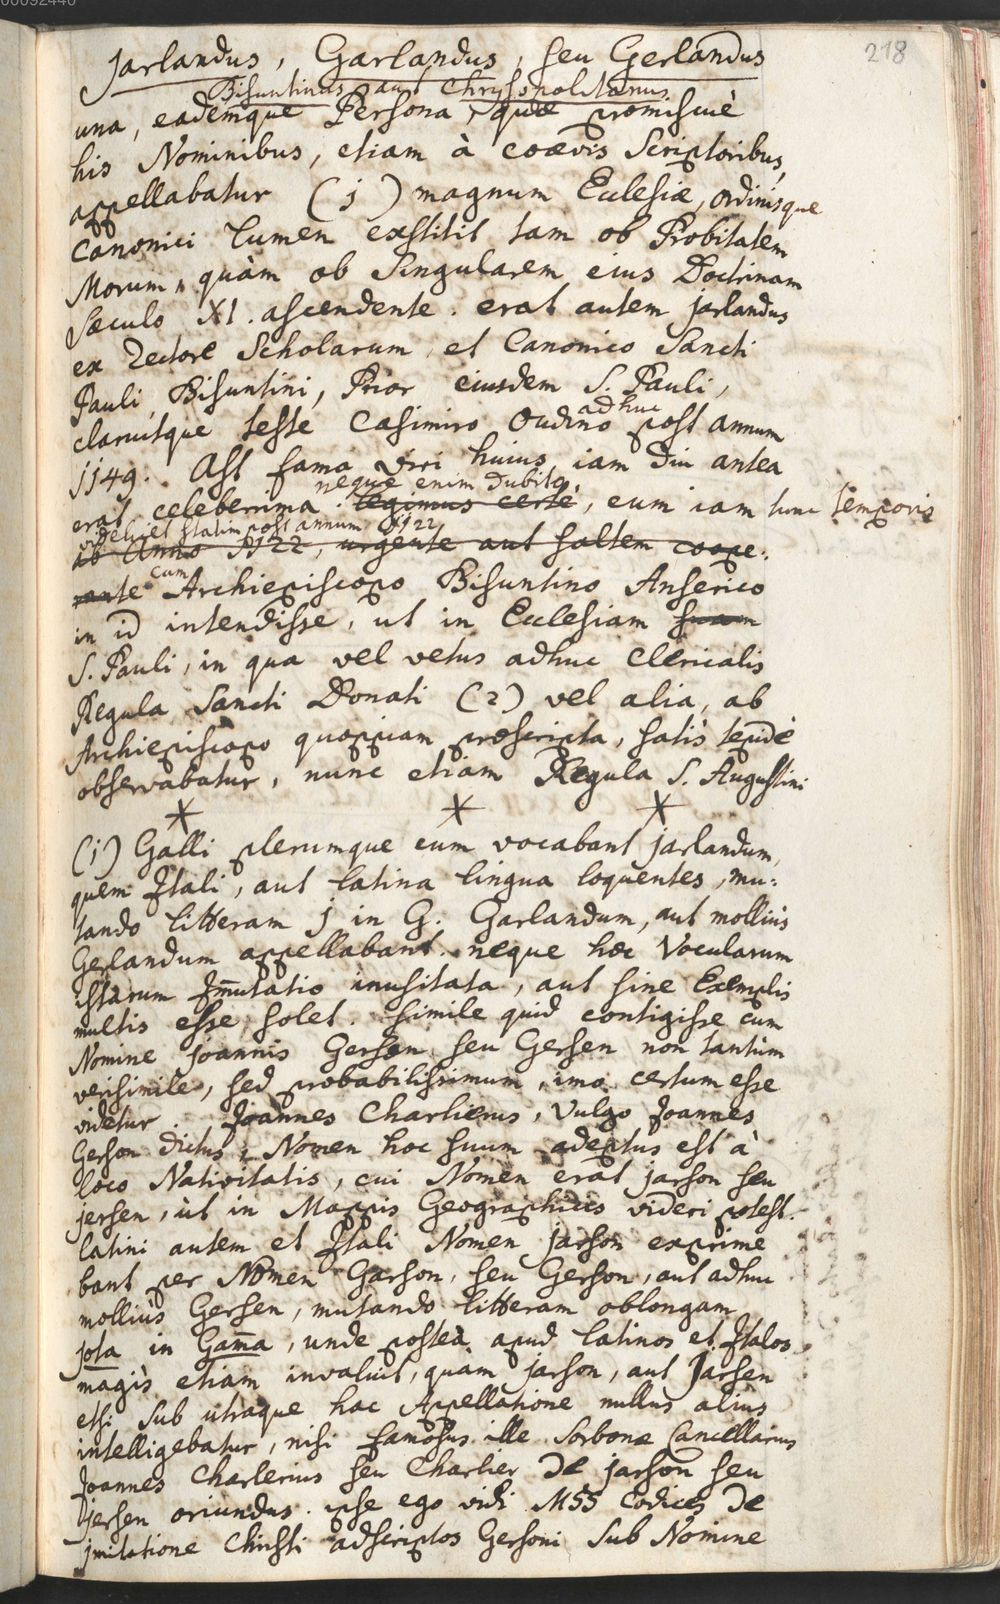 00092440
218
Jarlandus, Garlandus, seu Gerlandus
Bisuntinus aut Chrysopolitanus
una, eademque Persona, quæ promiscuè
his Nominibus, etiam à coævis Scriptoribus,
appellabatur (1) magnum Eclesiæ, ordinisque
Canonici lumen exstitit tam ob Probitatem
Morum, quàm ob Singularem eius Doctrinam
Sæculo XI. ascendente. erat autem jarlandus
ex Rectore Scholarum et Canonico Sancti
Pauli, Bisuntini, Prior eiusdem S. Pauli,
adhuc
claruitque teste Casimiro Oudino post annum
1149. Ast fama viri huius iam diu antea
neque enim dubito,
erat celeberrima. legimus certe, eum iam tunc temporis
videlicet statim post annum 1122
ab Anno 1122, urgente aut saltem coope:
rante cum Archiepiscopo Bisuntino Anserico
in id intendisse, ut in Ecclesiam suam
S. Pauli, in qua vel vetus adhuc Clericalis
Regula Sancti Donati (2) vel alia, ab
Archiepiscopo quopiam præscripta, satis tepidè
observabatur, nunc etiam Regula S. Augustini
(1) Galli plerumque eum vocabant jarlandum,
quem Itali, aut latina lingua loquentes, mu:
tando litteram j in G. Garlandum, aut molliùs
Gerlandum appellabant. neque hæc Vocularum
istarum Im̄utatio inusitata, aut sine Exemplis
multis esse solet. simile quid contigisse cum
Nomine Joannis Gerson seu Gersen non tantùm
verisimile, sed probabilissimum, imo certum esse
videtur. Joannes Charlierus, vulgo Joannes
Gerson dictus, Nomen hoc suum adeptus est à
loco Nativitatis, cui Nomen erat jarson seu
jersen, ùt in Mappis Geographicis videri potest.
latini autem et Itali Nomen jarson exprime
bant per Nomen Garson, seu Gerson, aut adhuc
molliùs Gersen, mutando litteram oblongam
jota in Gam̄a, unde posteà apud latinos et Italos
magis etiam invaluit, quam jarson, aut Jarsen
etsi sub utraque hac Appellatione nullus alius
intelligebatur, nisi famosus ille Sorbonæ Cancellarius
Joannes Charlerius seu Charlier de jarson seu
jersen oriundus. ipse ego vidi MSS Codices de
imitatione Christi adscriptos Gersoni sub Nomine